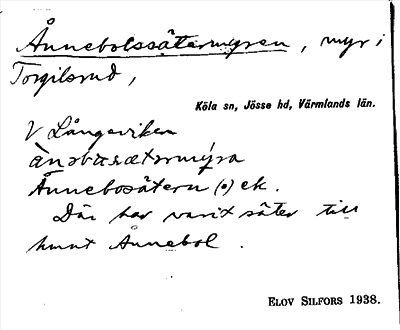 Ånnebolssätermyren, myr i
Torgilsrud,
Köla sn, Jösse hd, Värmlands län.
V Långeviken
Ånnebosätern (o) ek.
Där har varit säter till
hunt Ånnebol.
ELOV SILFORS 1938.